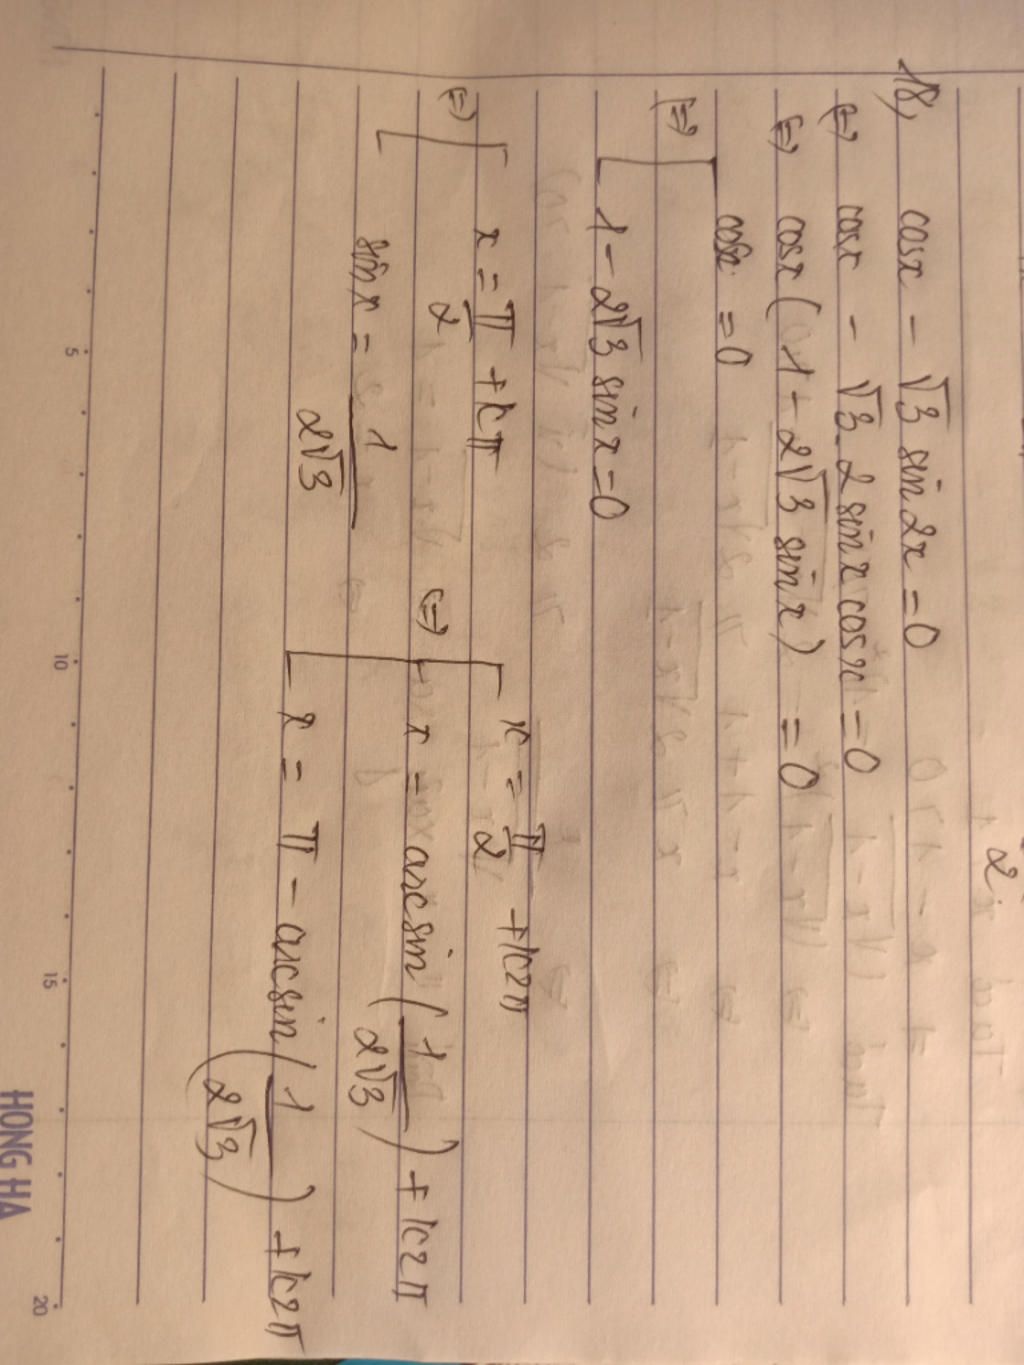 18, cosx - √3 sin2x = 0
⇔ cosx - √3.2sinxcosx = 0
⇔ cosx(1 - 2√3 sinx) = 0
⇔ [ cosx = 0
1 - 2√3 sinx = 0
⇔ [ x = π/2 + kπ
sinx = 1/(2√3)
⇔ [ x = π/2 + k2π
x = arcsin(1/(2√3)) + k2π
x = π - arcsin(1/(2√3)) + k2π
2
5
10
15
20
HONG HA